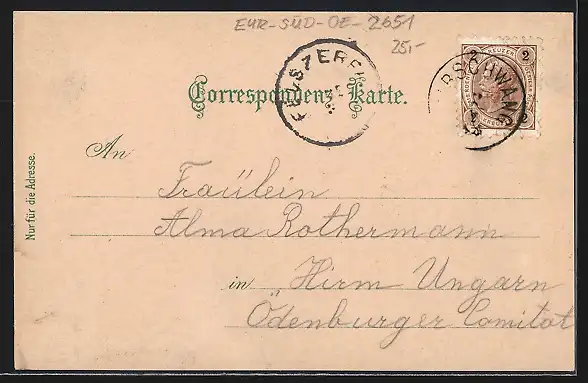 EUR-SÜD-OE-2651
25,-
2 KREUZER 2
Correspondenz-Karte.
An
Fräulein
Alma Rothermann
in „Hirm Ungarn
Ödenburger Comitat
Nur für die Adresse.